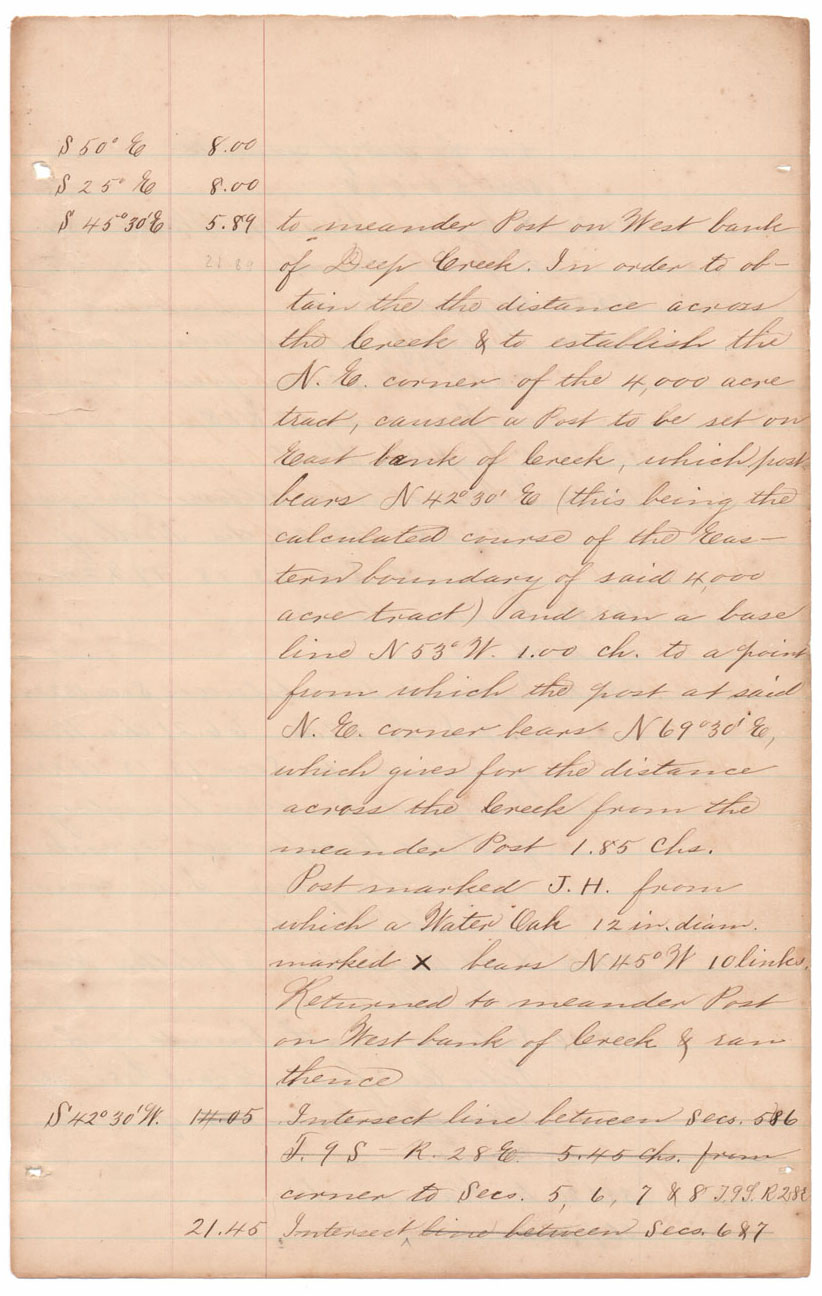 S 50° E 8.00
S 25° E 8.00
S 45°30'E 5.89 to meander Post on West bank
21 89 of Deep Creek. In order to ob-
tain the the distance across
the Creek & to establish the
N. E. corner of the 4,000 acre
tract, caused a Post to be set on
East bank of Creek, which post
bears N 42°30' E (this being the
calculated course of the Eas-
tern boundary of said 4,000
acre tract) and ran a base
line N 53° W. 1.00 ch. to a point
from which the post at said
N. E. corner bears N 69°30' E,
which gives for the distance
across the Creek from the
meander Post 1.85 Chs.
Post marked J. H. from
which a Water Oak 12 in. diam.
marked X bears N 45° W 10 links.
Returned to meander Post
on West bank of Creek & ran
thence
S 42°30' W. 14.05 Intersect line between Secs. 5 & 6
T. 9 S - R. 28 E. 5.45 Chs. from
corner to Secs. 5, 6, 7 & 8 T.9S. R 28E
21.45 Intersect line between Secs. 6 & 7